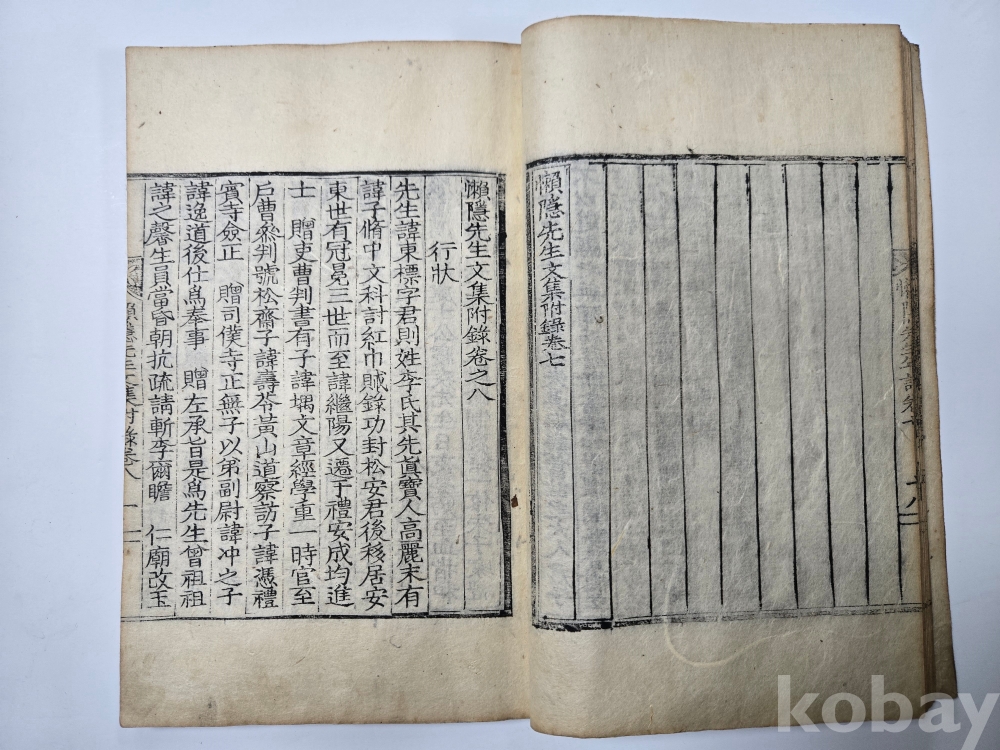 懶隱先生文集附錄卷七
懶隱先生文集附錄卷之八
行狀
先生諱東標字君則姓李氏其先眞寶人高麗末有
諱子脩中文科討紅巾賊錄功封松安君後移居安
東世有冠冕三世而至諱繼陽又遷于禮安成均進
士 贈吏曹判書有子諱堣文章經學重一時官至
戶曹叅判號松齋子諱壽苓黃山道察訪子諱憑禮
賓寺僉正 贈司僕寺正無子以弟副尉諱冲之子
諱逸道後仕爲奉事 贈左承旨是爲先生曾祖祖
諱之馨生員當昏朝抗疏請斬李爾瞻 仁廟改玉
懶隱先生文集附錄卷八
kobay